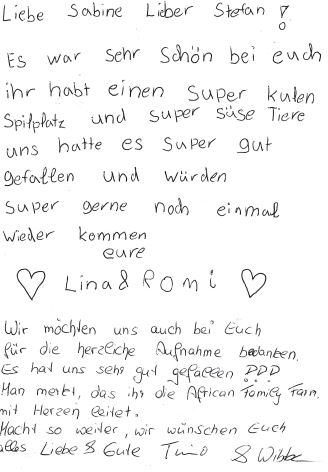 Liebe Sabine Lieber Stefan!
Es war sehr schön bei euch
ihr habt einen super kulen
Spilplatz und super süse Tiere
uns hatte es super gut
gefallen und würden
super gerne noch einmal
wieder kommen
eure
♡ Lina & Romi ♡
Wir möchten uns auch bei Euch
für die herzliche Aufnahme bedanken.
Es hat uns sehr gut gefallen DDD
Man merkt, das ihr die African Family Farm
mit Herzen leitet.
Macht so weiter, wir wünschen Euch
alles Liebe & Gute Timo &